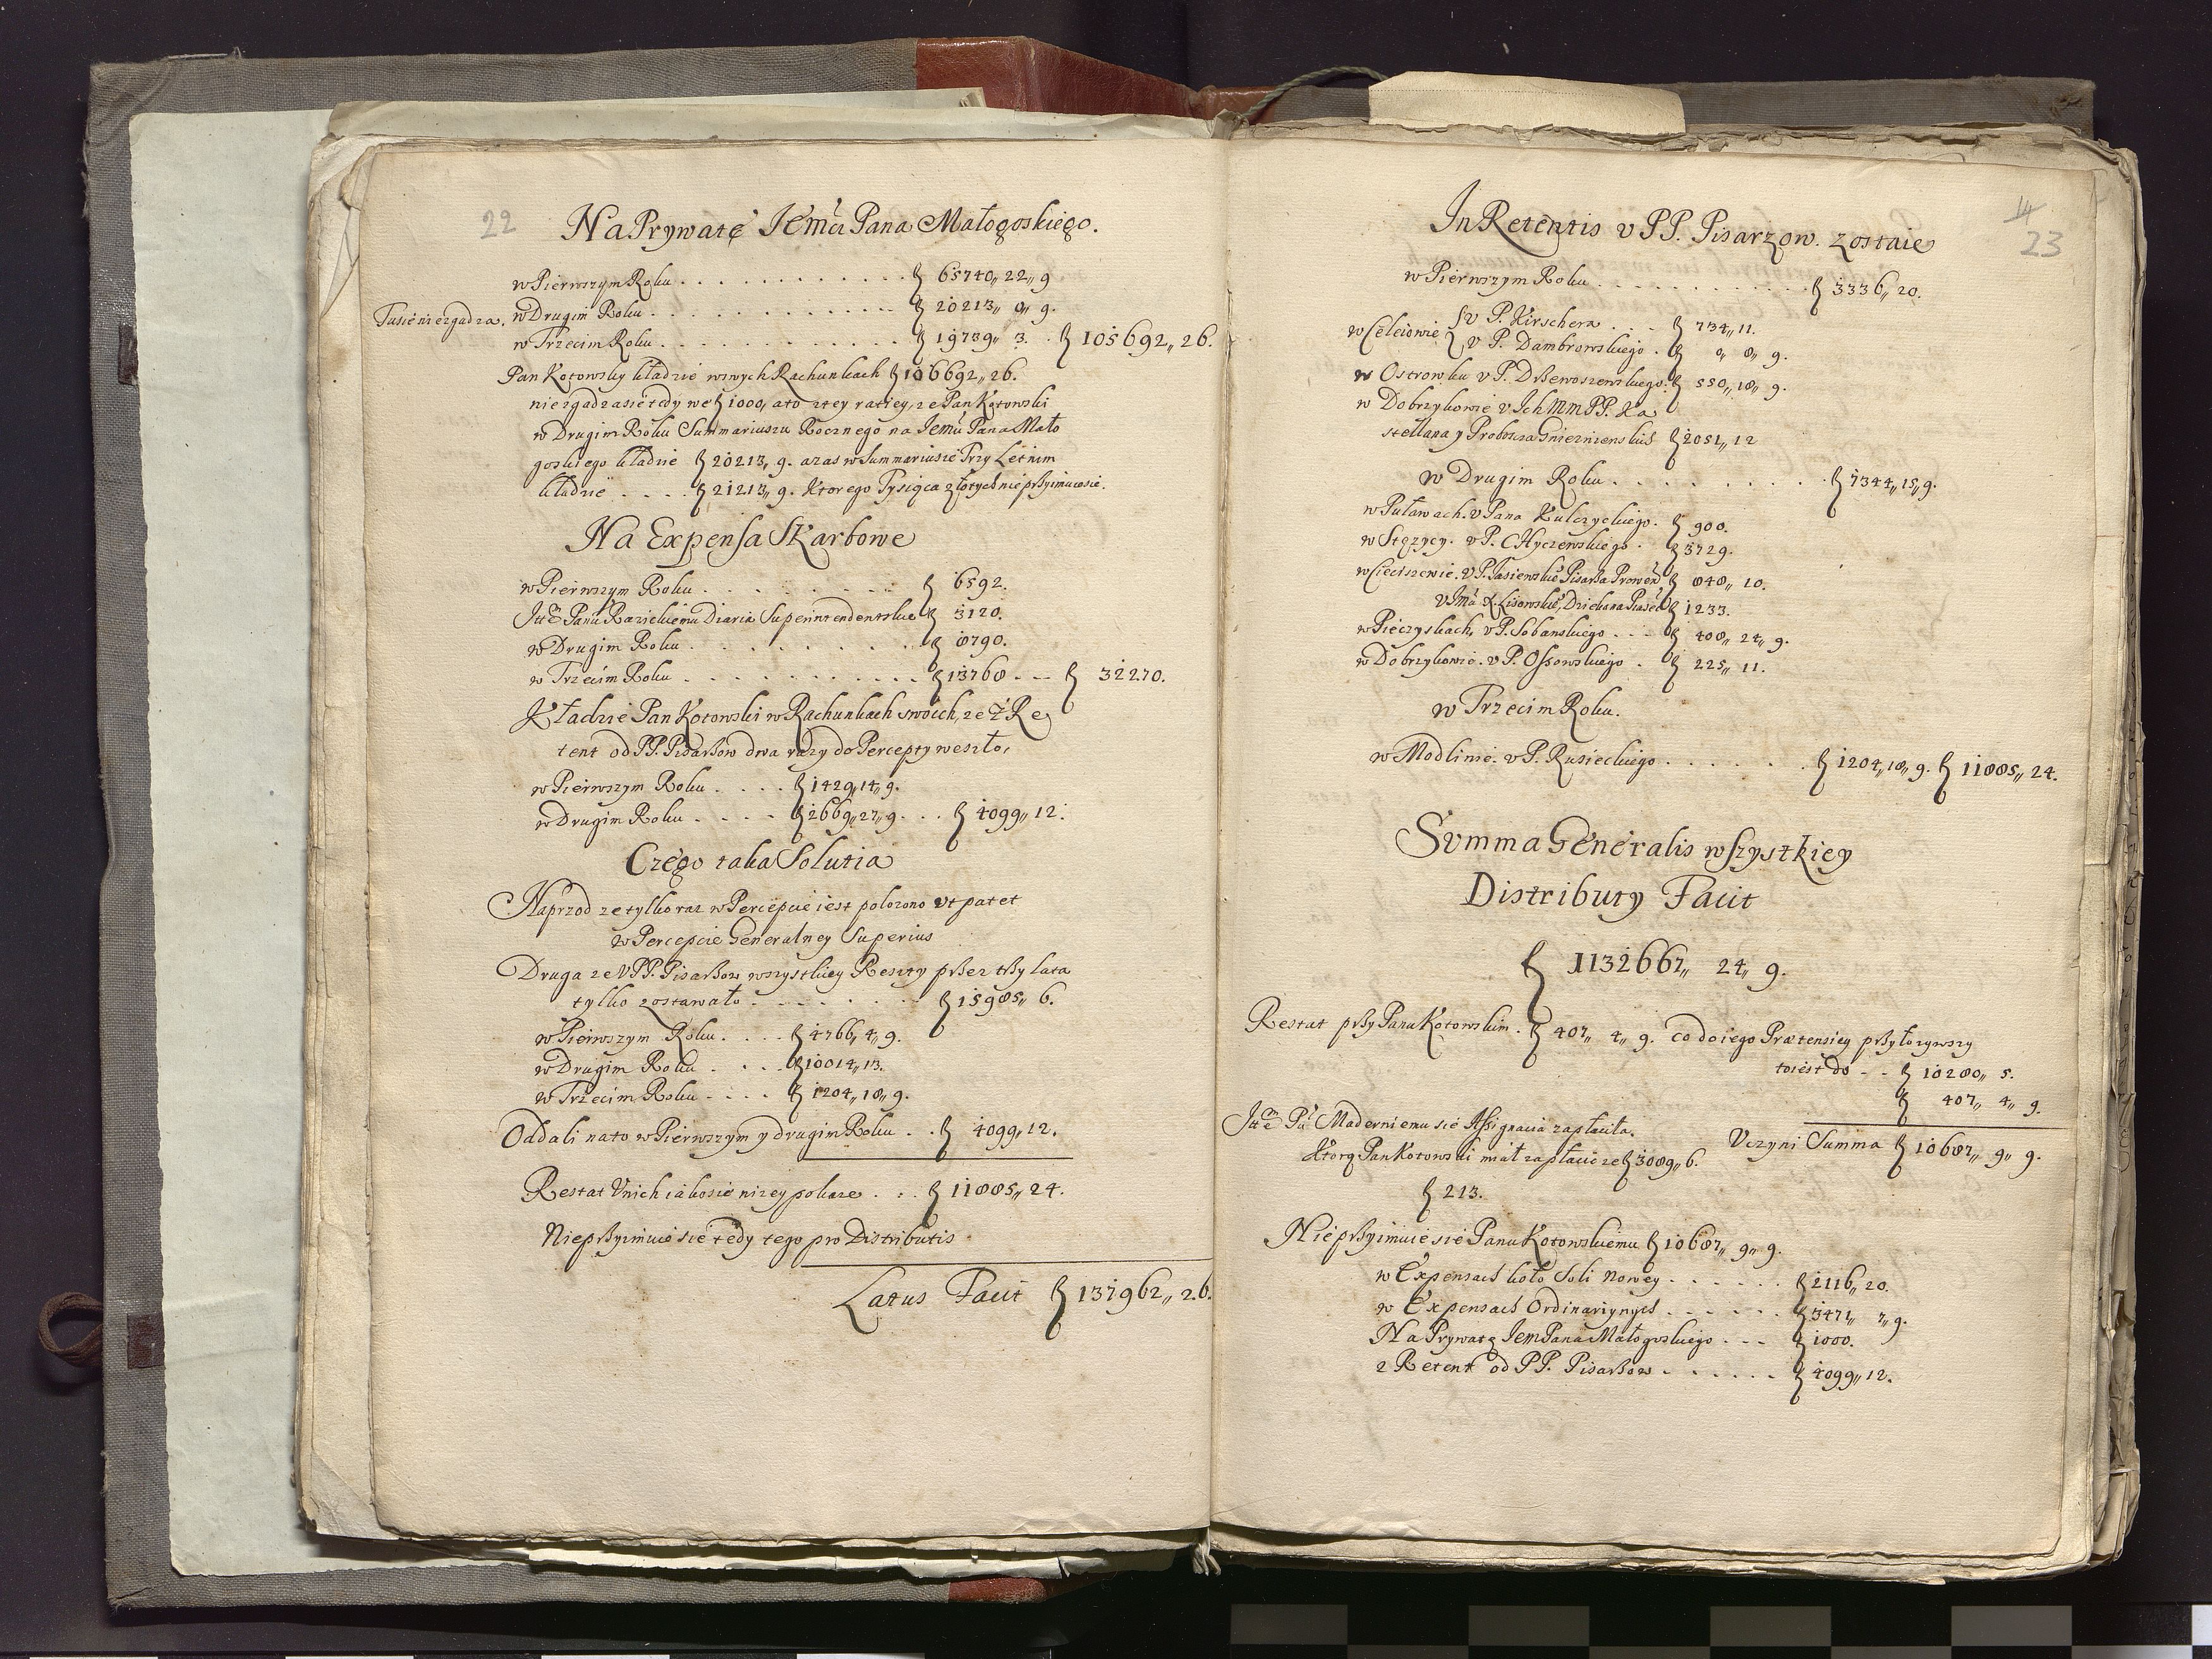 22
Na Prywatę Jem̃ci Pana Małogoskiego.
w Pierwszym Roku . . . . . . . . . . . . ƶ 65740,, 22,, 9
Tu się niezgadza. w Drugim Roku . . . . . . . . . . . . ƶ 20213,, 0,, 9.
w Trzecim Roku . . . . . . . . . . . . ƶ 19739,, 3. . ƶ 105692,, 26.
Pan Kotowsky kładzie w swych Rachunkach ƶ 106692,, 26.
niezgadza się tedy we ƶ 1000, a to z tey ratiey, ze Pan Kotowski
w Drugim Roku Summariuszu Rocznego na Jem̃ci Pana Mało
goskiego kładzie ƶ 20213,, 9. a zas w Summariusie Trzy Letnim
kładzie . . . . ƶ 21213,, 9. Ktorego Tysiąca złotych nie pßyimuie sie.
Na Expensa Skarbowe
w Pierwszym Roku . . . . . . . . . ƶ 6592.
Ittẽ Panu Razickiemu Diaria Superintendentskie ƶ 3120.
w Drugim Roku . . . . . . . . . ƶ 8790.
w Trzecim Roku . . . . . . . . . . . ƶ 13768 . - - ƶ 32270.
Kładzie Pan Kotowski w Rachunkach swoich, ze z Re
tent od PP. Pisarßow dwa razy do Percepty weszło,
w Pierwszym Roku . . . . ƶ 1429,, 14,, 9.
w Drugim Roku . . . . ƶ 2669,, 27,, 9 . . . ƶ 4099,, 12.
Czego taka Solutia
Naprzod ze tylko raz w Percepcie iest polozono vt patet
w Percepcie Generalney Superius
Druga ze V PP. Pisarßow wszystkiey Reszty pßez tßy lata
tylko zostawało . . . . . . . ƶ 15985,, 6.
w Pierwszym Roku . . . . ƶ 4766,, 4,, 9.
w Drugim Roku . . . . ƶ 10014,, 13.
w Trzecim Roku . . . . ƶ 1204,, 18,, 9.
Oddali na to w Pierwszym y drugim Roku . . ƶ 4099,, 12.
Restat Vnich iako sie nizey pokaze . . . ƶ 11885,, 24.
Nie pßyimuie sie tedy tego pro Distributis
Latus Facit ƶ 137962,, 26.
14
23
In Retentis v PP. Pisarzow. zostaie
w Pierwszym Roku . . . . . . . . . . . ƶ 3336,, 20.
w Celeiowie v P. Kirschera . . . ƶ 734,, 11.
v P. Dambrowskiego . ƶ 0,, 8,, 9.
w Ostrowku v P. Dßewoszewskiego. ƶ 550,, 18,, 9.
w Dobrzykowie v Ich Mm PP. Ka
stellana y Probosza Gnieznienskich ƶ 2051,, 12
w Drugim Roku . . . . . . . . ƶ 7344,, 15,, 9.
w Puławach. v Pana Kulczyckiego. ƶ 900.
w Stęzycy. v P. CHyczewskiego . ƶ 3729.
w Cieciszewie. v P. Jasienskie° Pisarßa Prowen̄ ƶ 848,, 10.
V Jm̃ci X. Lisowskie°, Dziekana Piasec̃ ƶ 1233.
w Pieczyskach, v P. Sobanskiego . . . ƶ 408,, 24,, 9.
w Dobrzykowie. v P. Ossowskiego . ƶ 225,, 11.
w Trzecim Roku.
w Modlinie. v P. Rusieckiego . . . . . . ƶ 1204,, 18,, 9. ƶ 11885,, 24.
Svmma Generalis wszystkiey
Distributy Facit
ƶ 1132667,, 24,, 9.
Restat pßy Panu Kotowskim. ƶ 407,, 4,, 9. co do iego Prætensiey pßyłozywszy
to iest do - - ƶ 10280,, 5.
ƶ 407,, 4,, 9.
Ittẽ Pu Maderniemu sie Assignacia zapłaciła. Vczyni Summa ƶ 10687,, 9,, 9.
Ktorą Pan Kotowski miał zapłacic ze ƶ 3089,, 6.
ƶ 213.
Nie pßyimuie sie Panu Kotowskiemu ƶ 10687,, 9,, 9.
w Expensach koło Soli Nowey . . . . . . ƶ 2116,, 20.
w Expensach Ordinariynych . . . . . . ƶ 3471,, 7,, 9.
Na Prywatę Jem Pana Małogoskiego . - - ƶ 1000.
z Retent od PP. Pisarßow . . . . . . ƶ 4099,, 12.